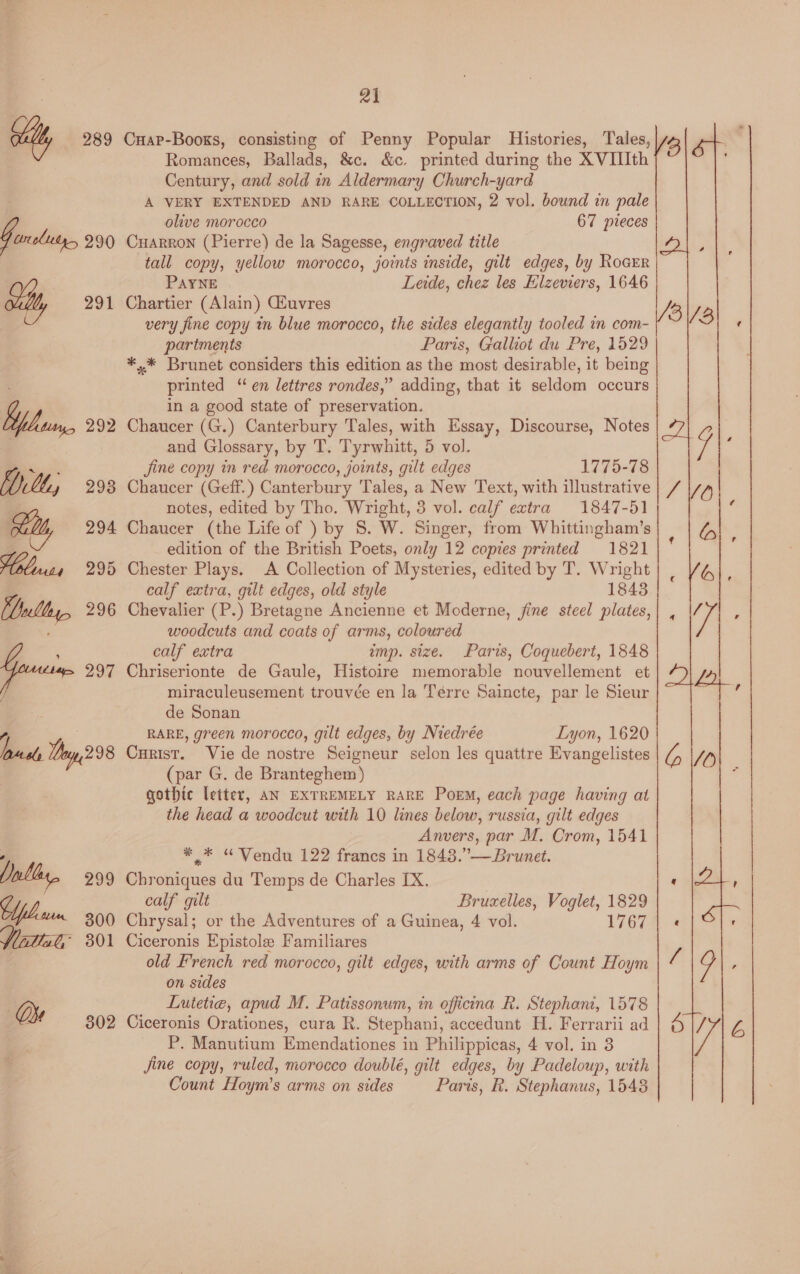 21
Lilly 289 Chap-Books, consisting of Penny Popular Histories, Tales,
Romances, Ballads, &c. &c. printed during the XVIIIth
Century, and sold in Aldermary Church-yard
A VERY EXTENDED AND RARE COLLECTION, 2 vol. bound in pale
olive morocco 67 pieces
290 Charron (Pierre) de la Sagesse, engraved title
tall copy, yellow morocco, joints inside, gilt edges, by Roger
Payne Leide, chez les Elzeviers, 1646
Lilly 291 Chartier (Alain) Œuvres 13 13
very fine copy in blue morocco, the sides elegantly tooled in com-
partments Paris, Galliot du Pre, 1529
*** Brunet considers this edition as the most desirable, it being
printed “en lettres rondes,” adding, that it seldom occurs
in a good state of preservation.
Upham 292 Chaucer (G.) Canterbury Tales, with Essay, Discourse, Notes 2 9
and Glossary, by T. Tyrwhitt, 5 vol.
fine copy in red morocco, joints, gilt edges 1775-78
Willis 293 Chaucer (Geff.) Canterbury Tales, a New Text, with illustrative 1 10
notes, edited by Tho. Wright, 3 vol. calf extra 1847-51
Lilly 294 Chaucer (the Life of ) by S. W. Singer, from Whittingham’s 6
edition of the British Poets, only 12 copies printed 1821
Holmes 295 Chester Plays. A Collection of Mysteries, edited by T. Wright 16
calf extra, gilt edges, old style 1843
296 Chevalier (P.) Bretagne Ancienne et Moderne, fine steel plates, 17
woodcuts and coats of arms, coloured
calf extra imp. size. Paris, Coquebert, 1848
297 Chriserionte de Gaule, Histoire memorable nouvellement et
miraculeusement trouvée en la Terre Saincte, par le Sieur
de Sonan
RARE, green morocco, gilt edges, by Niedrée Lyon, 1620
298 Christ. Vie de nostre Seigneur selon les quattre Evangelistes 6 10
(par G. de Branteghem)
gothic letter, AN EXTREMELY RARE POEM, each page having at
the head a woodcut with 10 lines below, russia, gilt edges
Anvers, par M. Crom, 1541
*** “Vendu 122 francs in 1843.”—Brunet.
299 Chroniques du Temps de Charles IX. 2
calf gilt Bruxelles, Voglet, 1829
Upham 300 Chrysal; or the Adventures of a Guinea, 4 vol. 1767
301 Ciceronis Epistolæ Familiares
old French red morocco, gilt edges, with arms of Count Hoym 1 9
on sides
Lutetiæ, apud M. Patissonum, in officina R. Stephani, 1578
302 Ciceronis Orationes, cura R. Stephani, accedunt H. Ferrarii ad 5 17 6
P. Manutium Emendationes in Philippicas, 4 vol. in 3
fine copy, ruled, morocco doublé, gilt edges, by Padeloup, with
Count Hoym’s arms on sides Paris, R. Stephanus, 1543